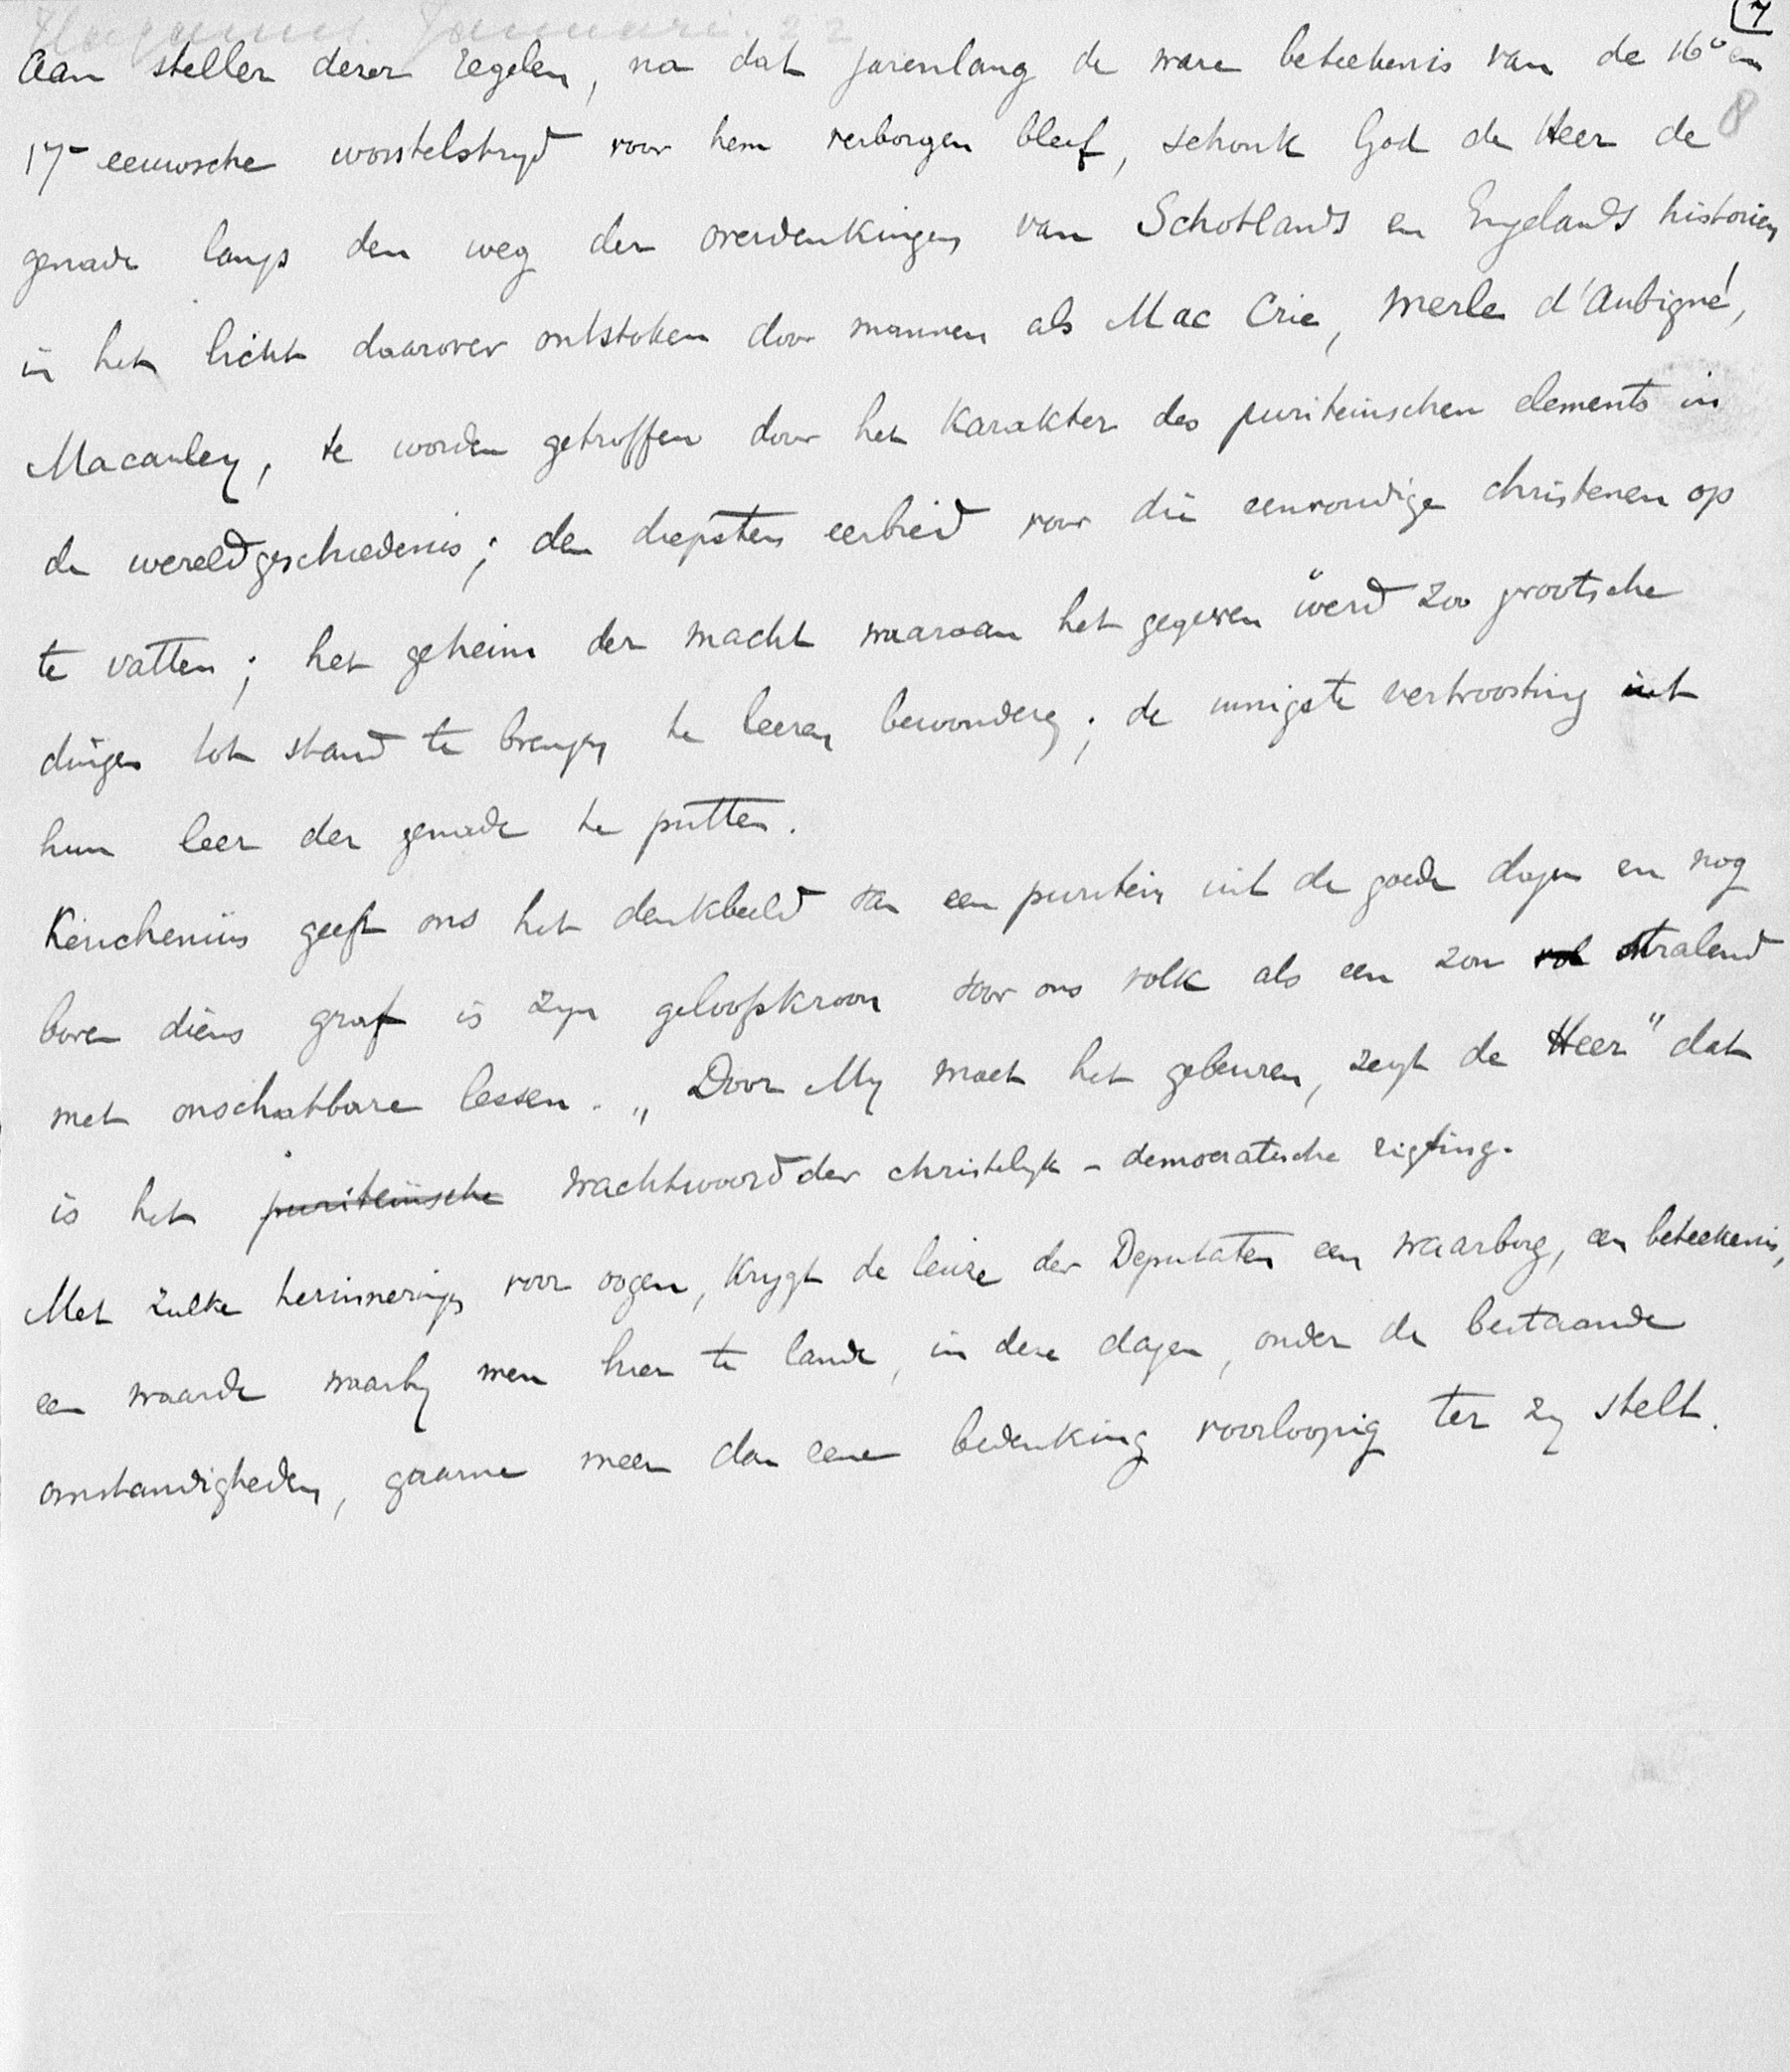 7
Januari. 22
Aan steller dezer regelen, na dat jarenlang de ware beteekenis van de 16e en
8
17-eeuwsche worstelstryd voor hem verborgen bleef, schonk God de Heer de
genade langs den weg der overdenkingen van Schotlands en Engelands historien
in het licht daarover ontstoken door mannen als Mac Crie, Merle d'Aubigné,
Macauley, te worden getroffen door het karakter des puriteinschen elements in
de wereldgeschiedenis; den diepsten eerbied voor die eenvoudige christenen op
te vatten; het geheim der macht waaraan het gegeven werd zoo grootsche
dingen tot stand te brengen te leeren bewonderen; de innigste vertroosting uit
hun leer der genade te putten.
Keuchenius geeft ons het denkbeeld van een puritein uit de goede dagen en nog
boven diens graf is zyn geloofskroon voor ons volk als een zon vol stralend
met onschatbare lessen. „Door My moet het gebeuren, zegt de Heer" dat
is het puriteinsche wachtwoord der christelyk-democratische rigting.
Met zulke herinneringen voor oogen, krygt de leuze der Deputaten een waarborg, een beteekenis,
een waarde waarby men hier te lande, in deze dagen, onder de bestaande
omstandigheden, gaarne meer dan eene bedenking voorloopig ter zy stelt.